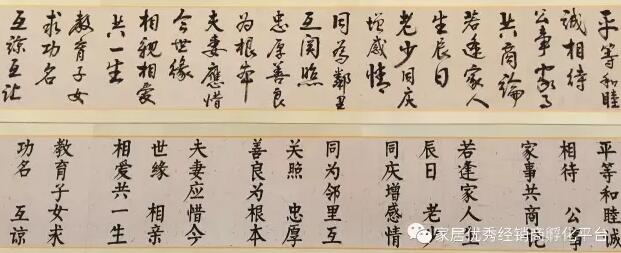 平等和睦
誠相待
公事家事
共商論
若逢家人
生辰日
老少同庆
增感情
同為鄰里
互関照
忠厚善良
為根本
夫妻應惜
今世緣
相親相愛
共一生
教育子女
求功名
互諒互让
平等和睦诚
相待 公事
家事共商论
若逢家人生
辰日 老少
同庆增感情
同为邻里互
关照 忠厚
善良为根本
夫妻应惜今
世缘 相亲
相爱共一生
教育子女求
功名 互谅
家居优秀经销商孵化平台